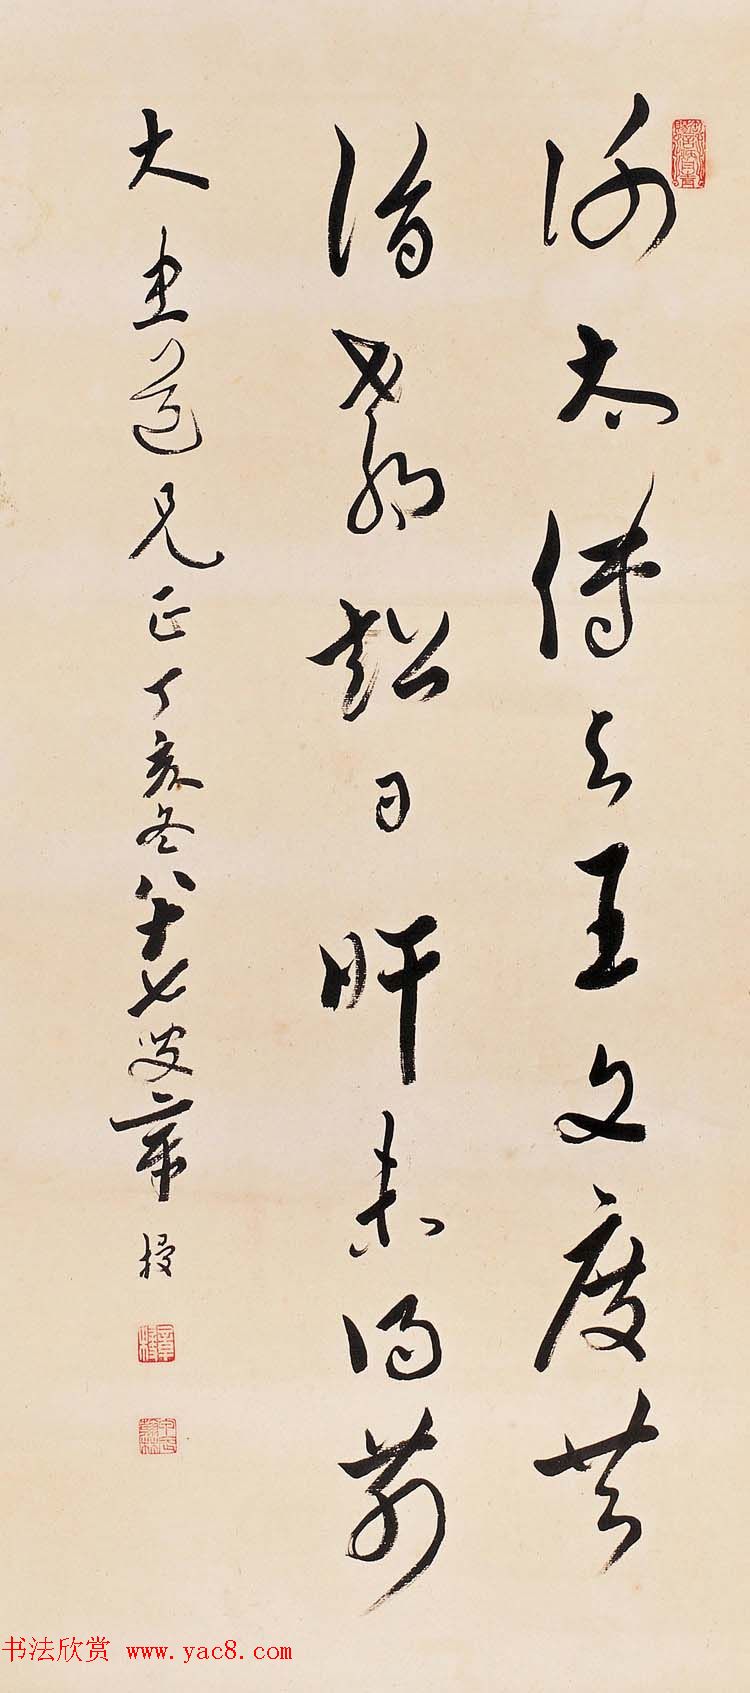 谢太傅与王文度共
诣郗超日旰未得前
大画道兄正丁亥冬八十七叟章梫
书法欣赏 www.yac8.com